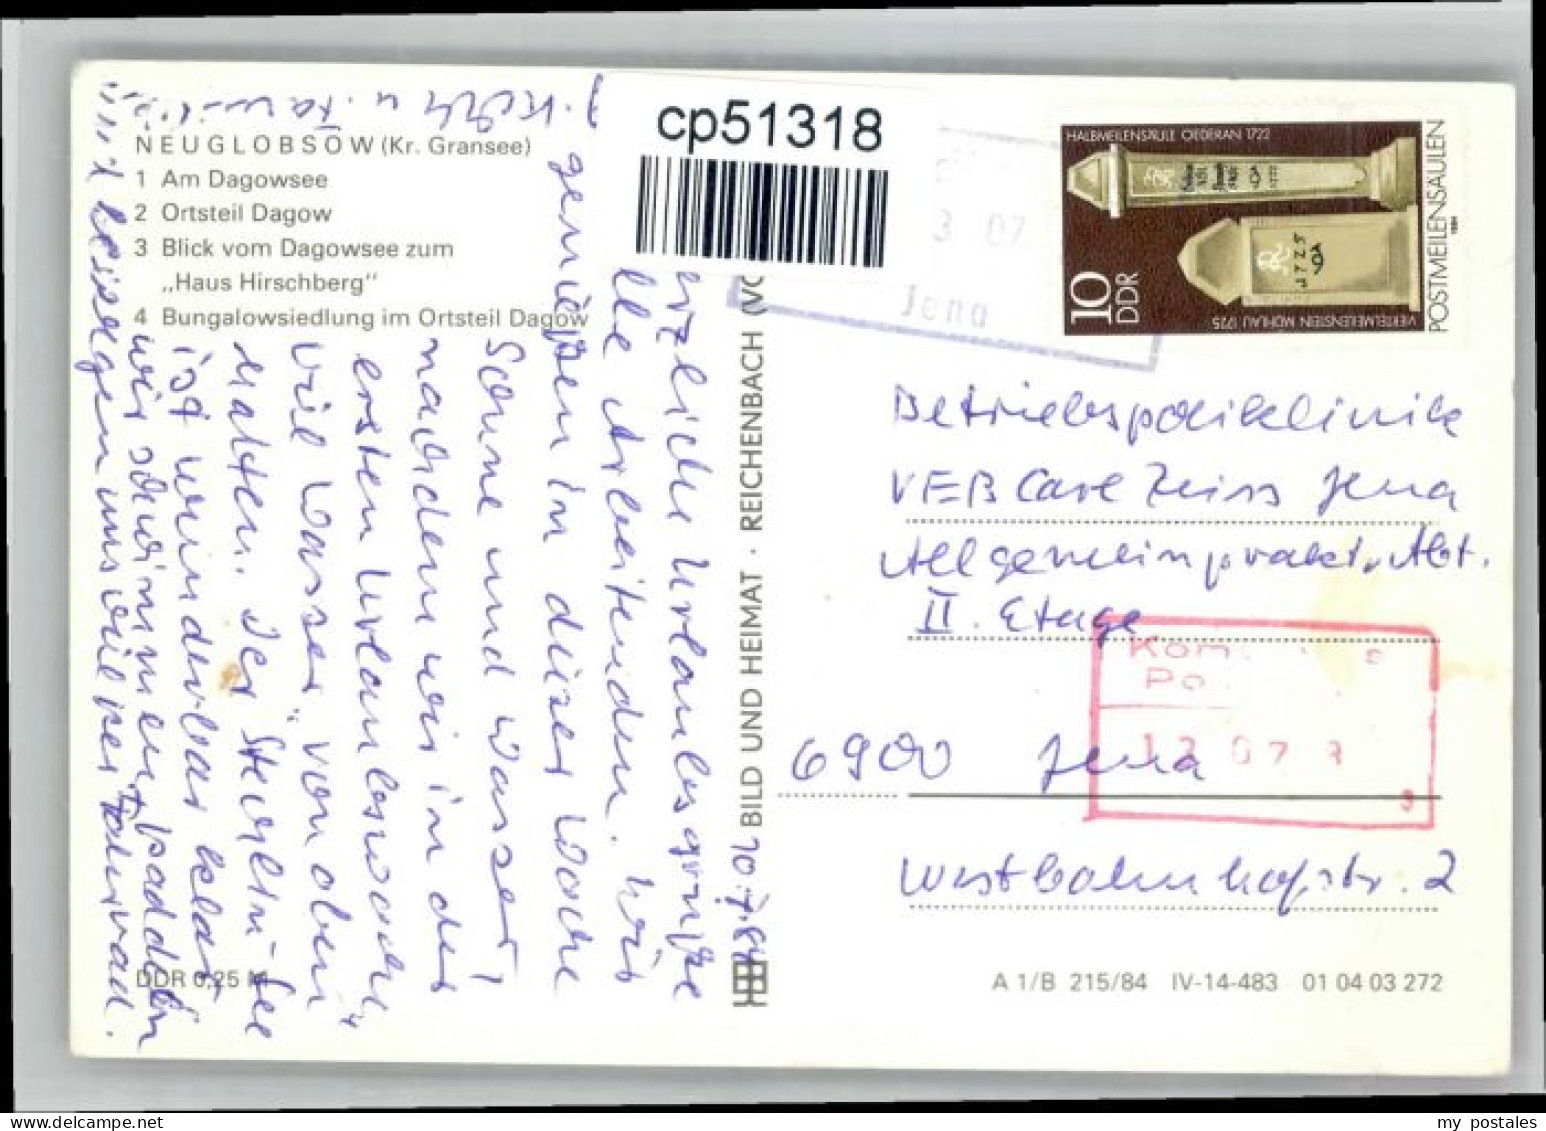 cp51318
NEUGLOBSOW (Kr. Gransee)
1 Am Dagowsee
2 Ortsteil Dagow
3 Blick vom Dagowsee zum
„Haus Hirschberg"
4 Bungalowsiedlung im Ortsteil Dagow
20.7.84
Urlaubsgrüße
lle Arbeitenden. Wir
genießen in dieser Woche
Sonne und Wasser,
nachdem wir in der
ersten Urlaubswoche
viel Wasser „von oben"
hatten. Der Stechlin-See
ist wunderbar klar
wir schwimmen, paddeln
u. bewegen uns viel per Fahrrad.
u. Familie
BILD UND HEIMAT · REICHENBACH (VO
DDR 0,25 M
HALBMEILENSÄULE OEDERAN 1722
VIERTELMEILENSTEIN MOHLAU 1725
10
DDR
POSTMEILENSÄULEN
1984
3 07
Jena
Betriebspoliklinik
VEB Carl Zeiss Jena
Allgemeinprakt. Abt.
II. Etage
Kom
Po
6900 Jena
Westbahnhofstr. 2
A 1/B 215/84 IV-14-483 01 04 03 272
my postales